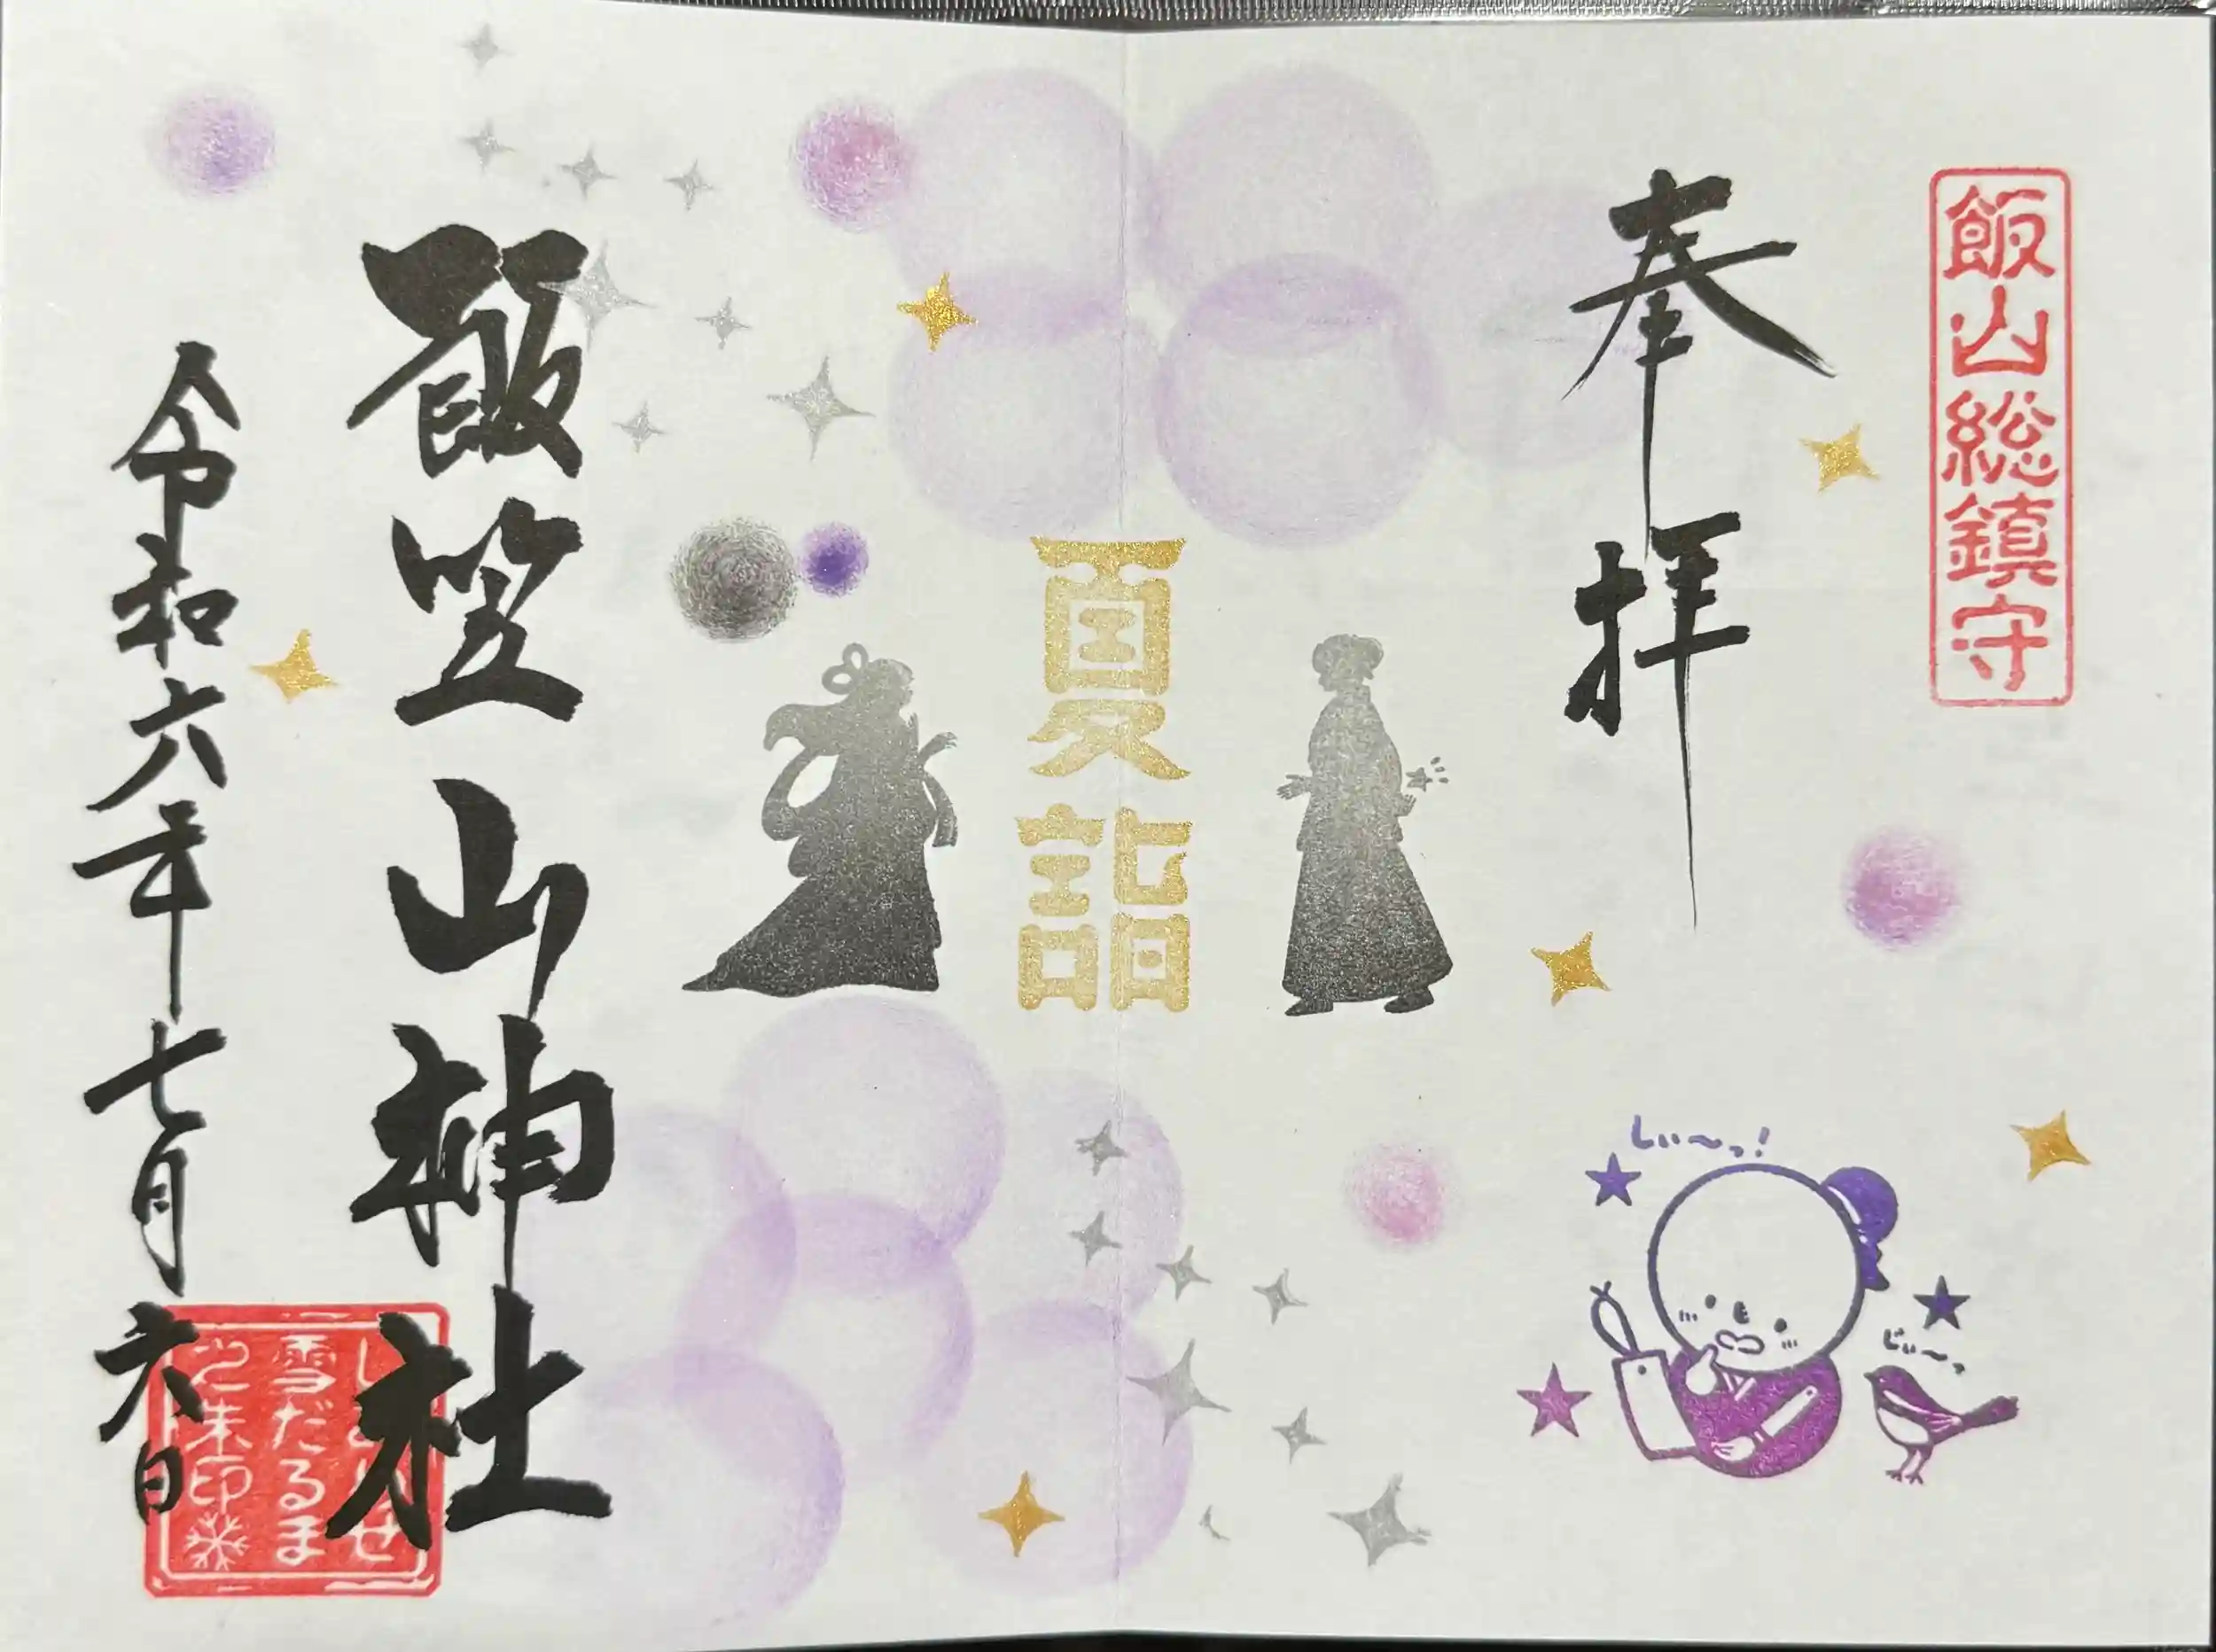 飯山総鎮守
奉拝
夏詣
しぃ〜っ!
じぃ〜っ
飯笠山神社
令和六年七月六日
雪だるま
之朱印